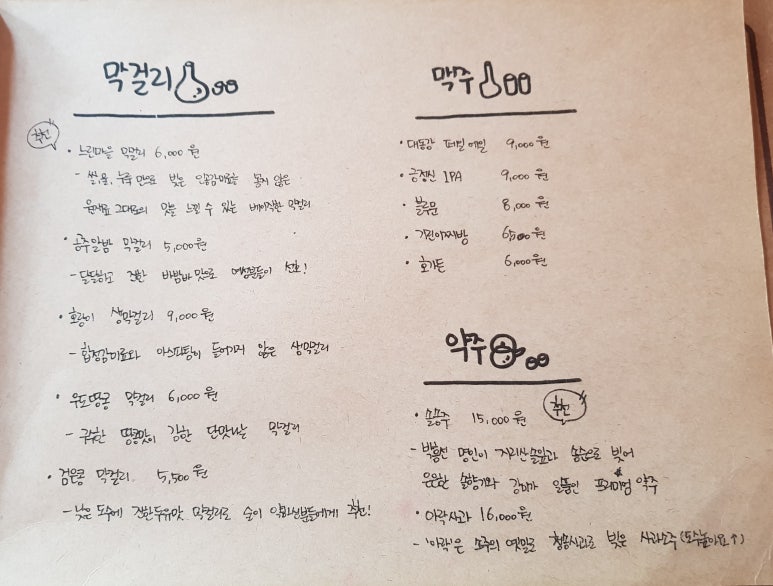 막걸리
추천
· 느린마을 막걸리 6,000원
- 쌀,물,누룩만으로 빚은 인공감미료를 넣지 않은
원재료 그대로의 맛을 느낄 수 있는 베이직한 막걸리
· 공주알밤 막걸리 5,000원
- 달달하고 진한 바밤바맛으로 여성분들이 선호!
· 호랑이 생막걸리 9,000원
- 합성감미료와 아스파탐이 들어가지 않은 생막걸리
· 우도땅콩 막걸리 6,000원
- 구수한 땅콩맛이 강한 단맛나는 막걸리
· 검은콩 막걸리 5,500원
- 낮은 도수에 진한두유맛 막걸리로 술이 약하신분들에게 추천!
맥주
· 대동강 페일에일 9,000원
· 긍정신 IPA 9,000원
· 블루문 8,000원
· 기린이찌방 6500원
· 호가든 6,000원
약주
· 솔송주 15,000원
추천
- 박흥선 명인이 지리산솔잎과 송순으로 빚어
은은한 솔향기와 감미가 일품인 프리미엄 약주
· 아락사과 16,000원
- '아락'은 소주의 옛말로 청송사과로 빚은 사과소주 (도수높아요↑)